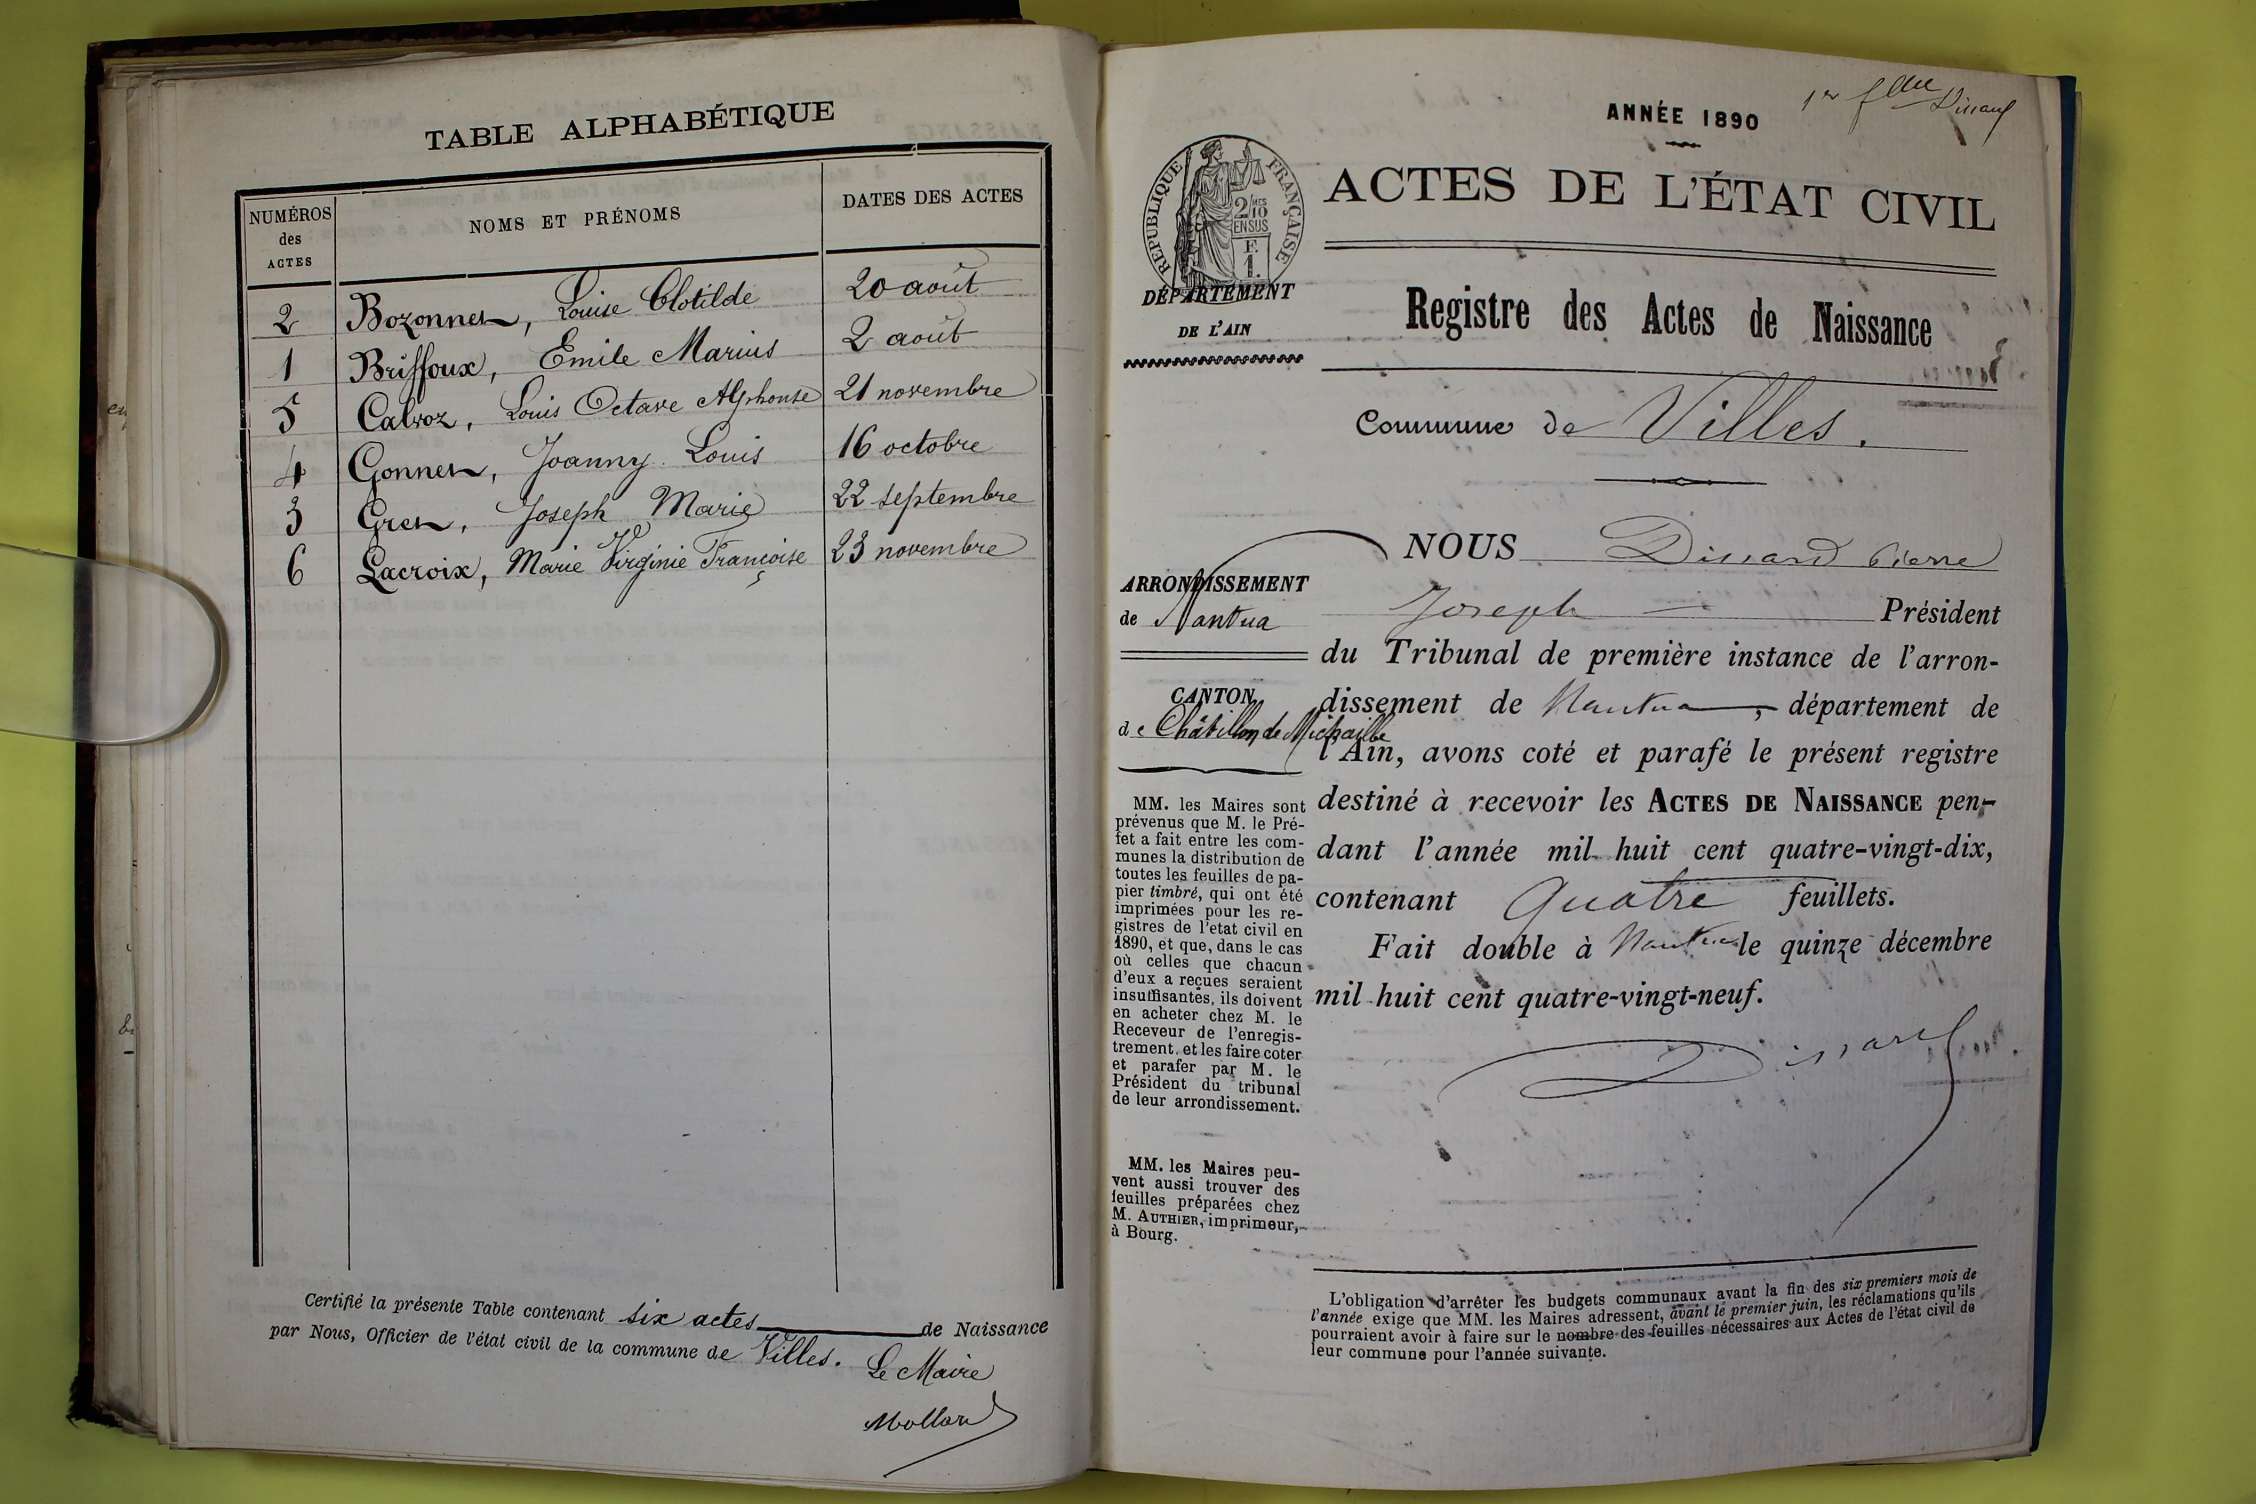 TABLE ALPHABÉTIQUE
NUMÉROS
des
ACTES
NOMS ET PRÉNOMS
DATES DES ACTES
2 Bozonnet, Louise Clotilde 20 août
1 Briffoux, Emile Marius 2 août
5 Calvoz, Louis Octave Alphonse 21 novembre
4 Gonnet, Joanny Louis 16 octobre
3 Gret, Joseph Marie 22 septembre
6 Lacroix, Marie Virginie Françoise 23 novembre
Certifié la présente Table contenant six actes de Naissance
par Nous, Officier de l'état civil de la commune de Villes.
Le Maire
Mollard
1er flle
Dissard
ANNÉE 1890
ACTES DE L'ÉTAT CIVIL
RÉPUBLIQUE FRANÇAISE
2/10 MES
EN SUS
F.
1.
DÉPARTEMENT
DE L'AIN
Registre des Actes de Naissance
Commune de Villes.
ARRONDISSEMENT
de Nantua
CANTON
de Châtillon de Michaille
MM. les Maires sont
prévenus que M. le Pré-
fet a fait entre les com-
munes la distribution de
toutes les feuilles de pa-
pier timbré, qui ont été
imprimées pour les re-
gistres de l'etat civil en
1890, et que, dans le cas
où celles que chacun
d'eux a reçues seraient
insuffisantes, ils doivent
en acheter chez M. le
Receveur de l'enregis-
trement, et les faire coter
et parafer par M. le
Président du tribunal
de leur arrondissement.
MM. les Maires peu-
vent aussi trouver des
feuilles préparées chez
M. AUTHIER, imprimeur,
à Bourg.
NOUS Dissard Pierre
Joseph Président
du Tribunal de première instance de l'arron-
dissement de Nantua, département de
l'Ain, avons coté et parafé le présent registre
destiné à recevoir les ACTES DE NAISSANCE pen-
dant l'année mil huit cent quatre-vingt-dix,
contenant Quatre feuillets.
Fait double à Nantua le quinze décembre
mil huit cent quatre-vingt-neuf.
Dissard
L'obligation d'arrêter les budgets communaux avant la fin des six premiers mois de
l'année exige que MM. les Maires adressent, avant le premier juin, les réclamations qu'ils
pourraient avoir à faire sur le nombre des feuilles nécessaires aux Actes de l'état civil de
leur commune pour l'année suivante.